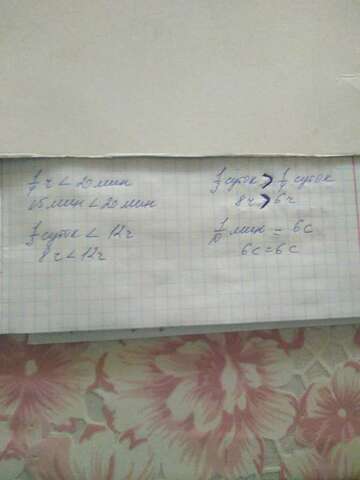 1/4 ч < 20 мин
15 мин < 20 мин
1/3 суток < 12 ч
8 ч < 12 ч
1/3 суток > 1/4 суток
8 ч > 6 ч
1/10 мин = 6 с
6 с = 6 с